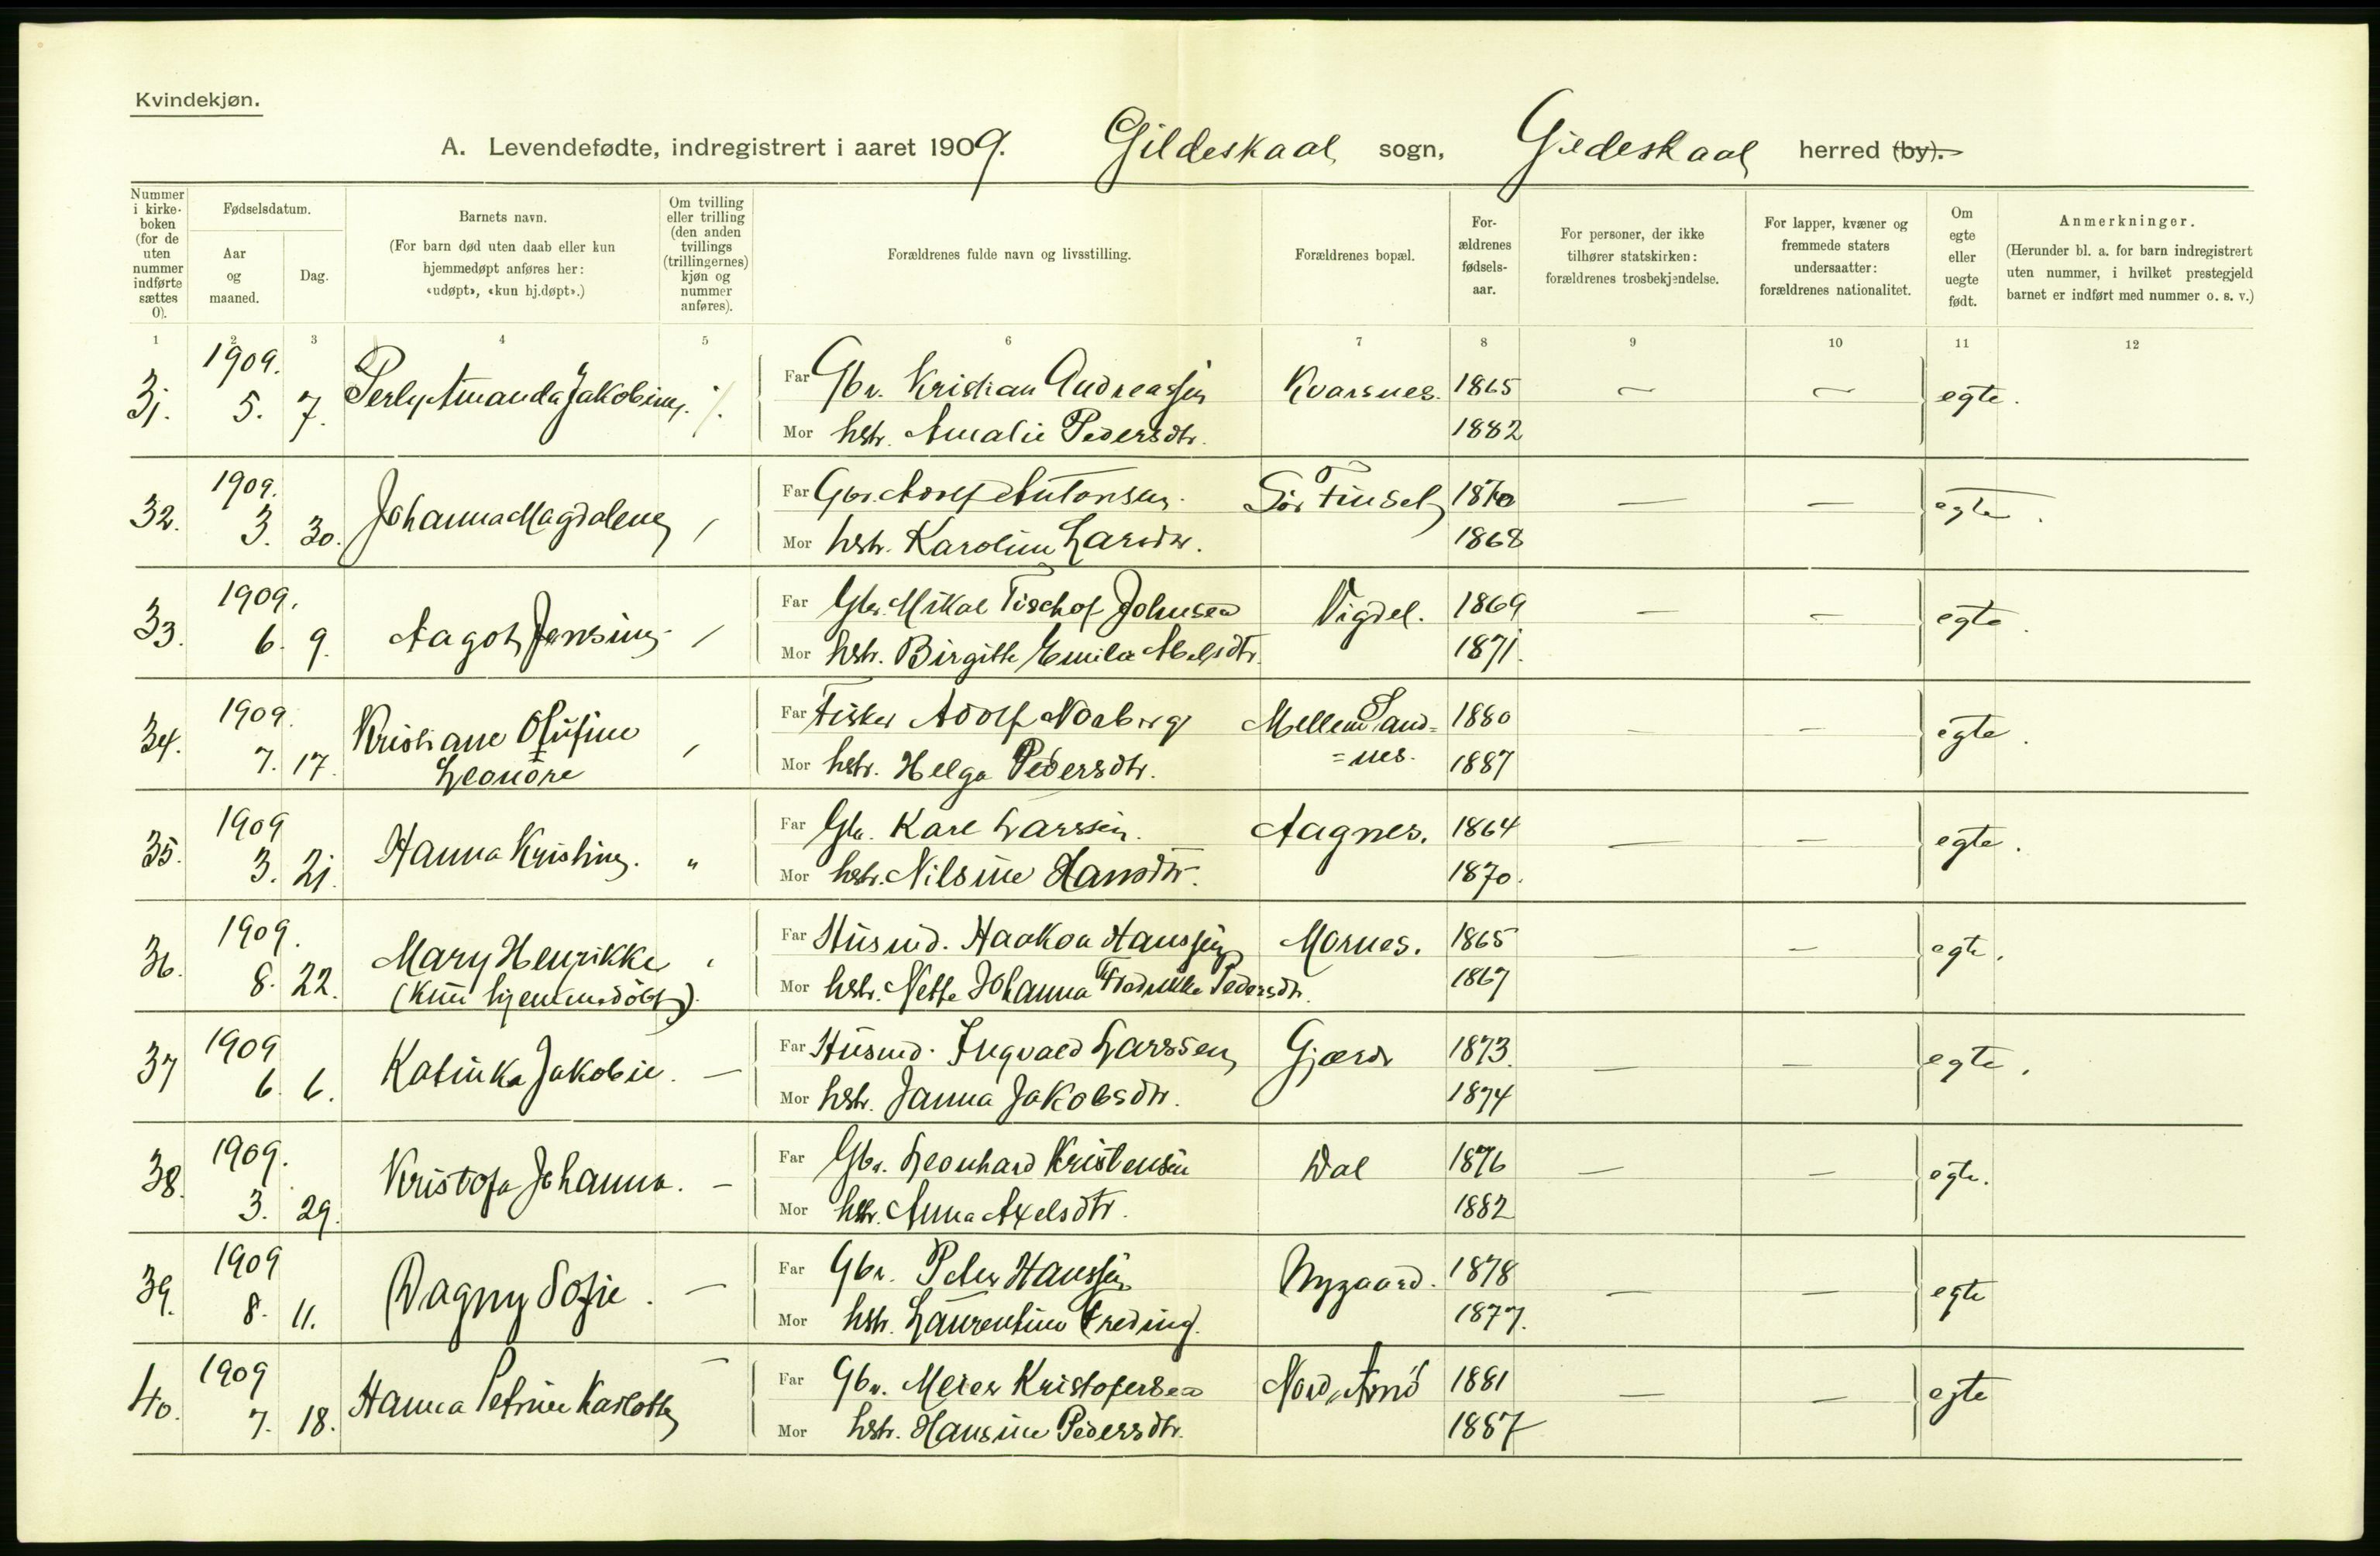 Kvindekjøn.
A. Levendefødte, indregistrert i aaret 1909. Gildeskaal sogn, Gildeskaal herred (by).
Nummer i kirke-boken (for de uten nummer indførte sættes 0).
Fødselsdatum.
Aar og maaned.
Dag.
Barnets navn.
(For barn død uten daab eller kun hjemmedøpt anføres her: «udøpt», «kun hj.døpt».)
Om tvilling eller trilling (den anden tvillings (trillingernes) kjøn og nummer anføres).
Forældrenes fulde navn og livsstilling.
Forældrenes bopæl.
For-ældrenes fødsels-aar.
For personer, der ikke tilhører statskirken: forældrenes trosbekjendelse.
For lapper, kvæner og fremmede staters undersaatter: forældrenes nationalitet.
Om egte eller uegte født.
Anmerkninger.
(Herunder bl. a. for barn indregistrert uten nummer, i hvilket prestegjeld barnet er indført med nummer o. s. v.)
1 2 3 4 5 6 7 8 9 10 11 12
31. 1909. 5. 7. Perly Amanda Jakobine. Far Gbr. Kristian Andreassen Kvarsnes. 1865 egte.
Mor hstr. Amalie Pedersdtr. 1882
32. 1909. 3. 30. Johanna Magdalene Far Gbr. Adolf Antonsen. Sör 1870 — — egte.
Mor hstr. Karoline Larsdtr. 1868
33. 1909. 6. 9. Aagot Jensine Far Gbr. Mikal Johnsen Vigdel. 1869 — — egte.
Mor hstr. Birgitte Emilie Abelsdtr. 1871.
34. 1909. 7. 17. Kristiane Olufine Leonore Far Fisker Adolf Norberg Mellem Sand= 1880 — — egte.
Mor hstr. Helga Pedersdtr. =nes. 1887
35. 1909 3. 21. Hanna Kristine. " Far Gbr. Karl Larssen. Aagnes. 1864 — — egte.
Mor hstr. Nilsine Hansdtr. 1870.
36. 1909. 8. 22. Mary Henrikke (kun hjemmedöbt). Far Husmd. Haakon Hanssen Mornes. 1865 — egte.
Mor hstr. Nette Johanna Fredrikke Pedersdtr. 1867
37 1909 6. 6. Katinka Jakobie. — Far Husmd. Ingvald Larssen Gjærde 1873. — — egte.
Mor hstr. Janna Jakobsdtr. 1874
38. 1909. 3. 29. Kristofa Johanna. — Far Gbr. Leonhard Kristensen Dal 1876 — — egte.
Mor hstr. Anna Axelsdtr. 1882
39. 1909 8. 11. Dagny Sofie. — Far Gbr. Peter Hanssen Nygaard. 1878 — — egte
Mor hstr. Laurentine 1877.
40. 1909 7. 18. Hanna Petrine Karlotte — Far Gbr. Meier Kristofersen Nord Arnö 1881 — — egte
Mor hstr. Hansine Pedersdtr. 1887